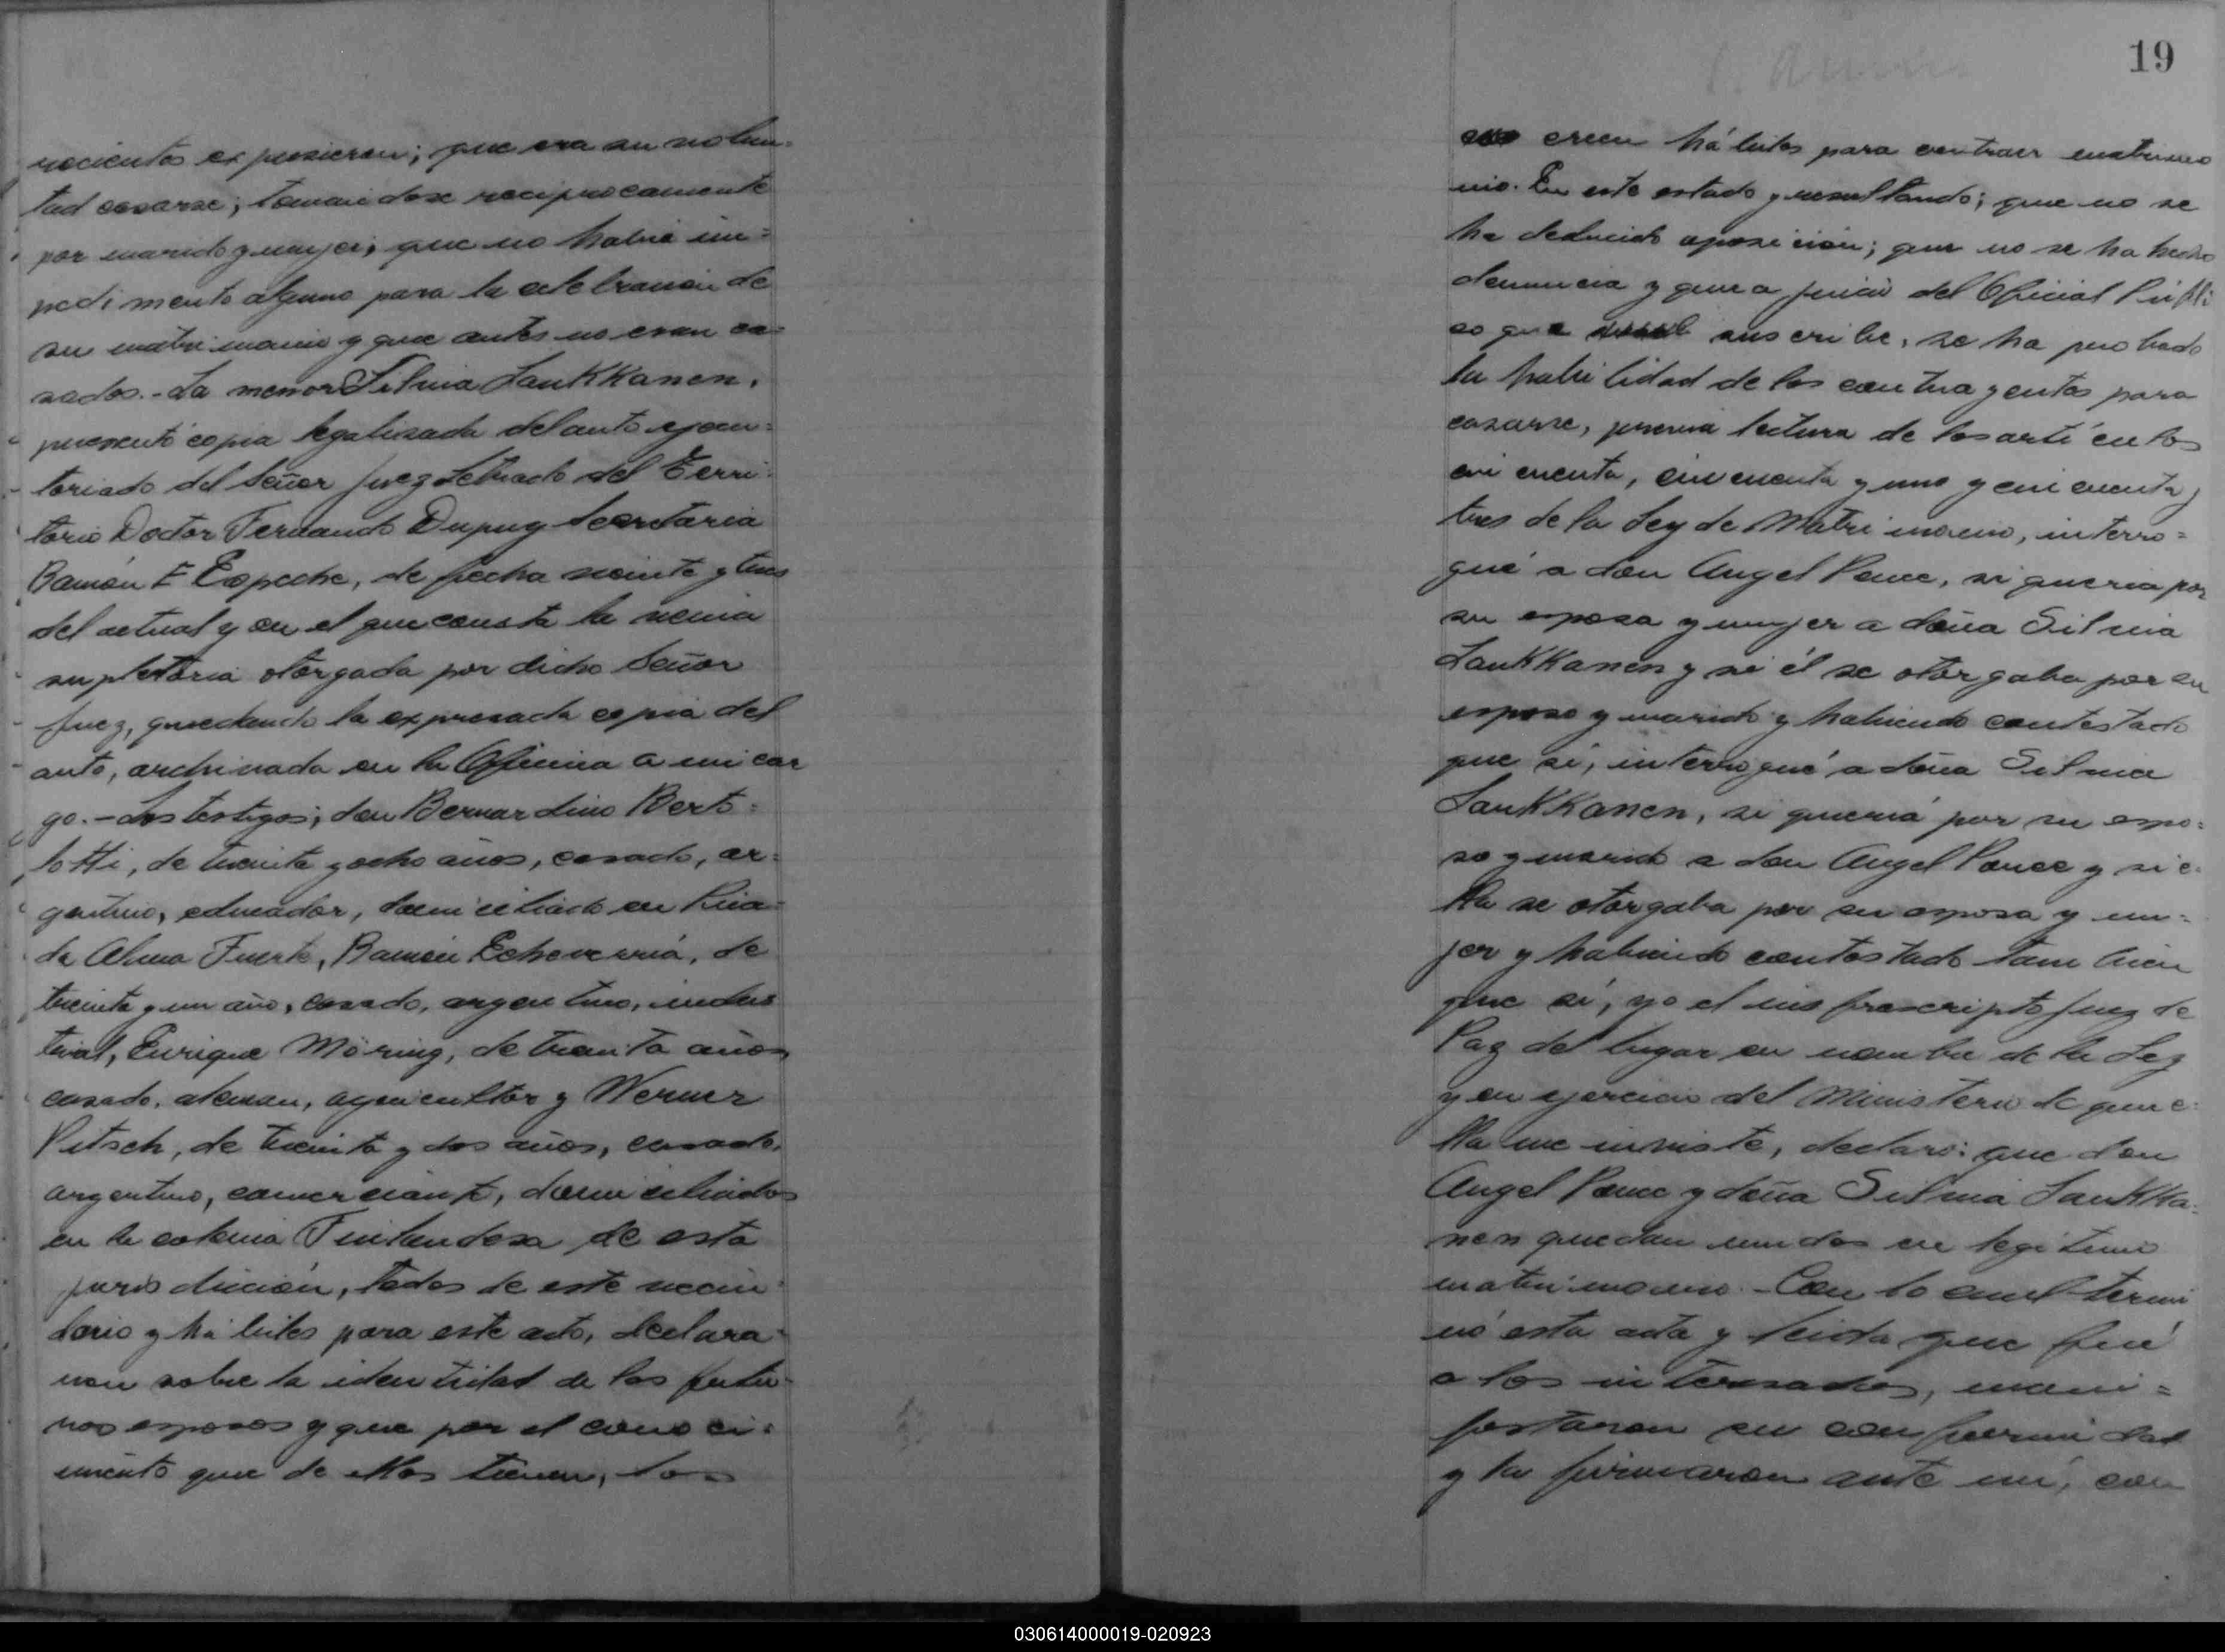 recientes expusieron; que era su volun-
tad casarse; tomandose reciprocamente
por marido y mujer; que no habia im=
pedimento alguno para la celebracion de
su matrimonio y que antes no eran ca-
sados.- La menor Silmia Laukkanen,
presentó copia legalizada del auto ejecu=
toriado del Señor Juez Letrado del Terri-
torio Doctor Fernando Dupuy Secretaria
Ramón E Espeche, de fecha veinte y tres
del actual y en el que consta la venia
supletoria otorgada por dicho Señor
Juez, quedando la expresada copia del
auto, archivada en la Oficina a mi car
go.- Los testigos; don Bernardino Berto=
lotti, de treinta y ocho años, casado, ar=
gentino, educador, domiciliado en Pica=
da Alma Fuerte, Ramón Echeverriá, de
treinta y un año, casado, argentino, indus
trial, Enrique Möring, de treinta años
casado, aleman, agricultor y Werner
Pitsch, de treinta y dos años, casado,
argentino, comerciante, domiciliados
en la colonia Finlandesa de esta
jurisdiccion, todos de este vecin-
dario y hábiles para este acto, declara-
ron sobre la identidad de los futu-
ros esposos y que por el conoci=
miento que de ellos tienen, los
creen hábiles para contraer matrimo
nio. En este estado y resultando; que no se
ha deducido oposición; que no se ha hecho
denuncia y que a juicio del Oficial Públi
co que suscribe, se ha probado
la habilidad de los contrayentes para
casarse, previa lectura de los artículos
cincuenta, cincuenta y uno y cincuenta y
tres de la Ley de Matrimonio, interro=
gué a don Angel Ponce, si queria por
su esposa y mujer a doña Silmia
Laukkanen y si él se otorgaba por su
esposo y marido y habiendo contestado
que sí, interrogué a doña Silmia
Laukkanen, si queriá por su espo=
so y marido a don Angel Ponce y si e-
lla se otorgaba por su esposa y mu=
jer y habiendo contestado tambien
que sí, yo el infrascripto Juez de
Paz del lugar en nombre de la Ley
y en ejercicio del Ministerio de que e-
lla me inviste, declaro: que don
Angel Ponce y doña Silmia Laukka-
nen quedan unidos en legitimo
matrimonio.- Con lo cual termi
nó esta acta y leida que fué
a los interesados, mani=
festaron su conformidad
y la firmaron ante mí, con
19
030614000019-020923